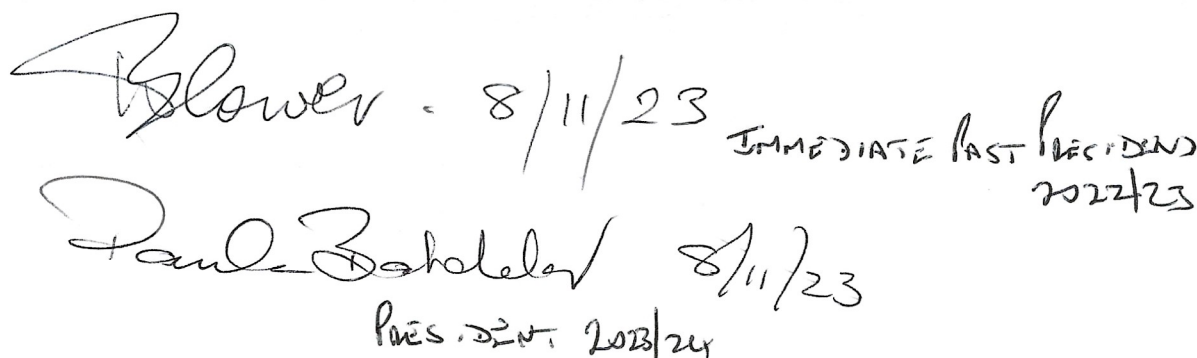 Blower. 8/11/23
IMMEDIATE PAST PRESIDENT
2022/23
Paula 8/11/23
PRESIDENT. 2023/24